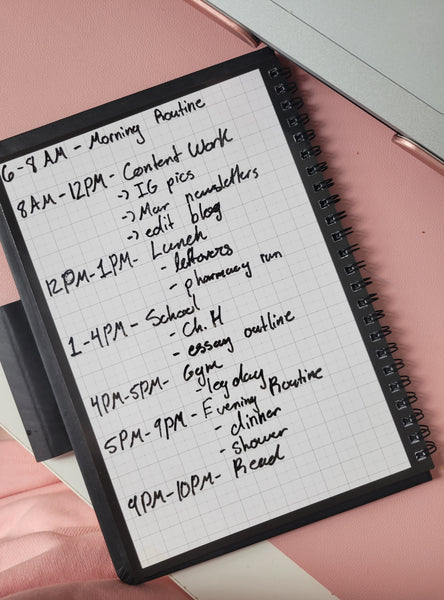 6-8 AM - Morning Routine
8AM-12PM- Content Work
-> IG pics
-> Mar newsletters
-> edit blog
12PM-1PM- Lunch
- leftovers
- pharmacy run
1-4PM- School
- Ch. 4
- essay outline
4PM-5PM- Gym
- leg day
5PM-9PM- Evening Routine
- dinner
- shower
9PM-10PM- Read